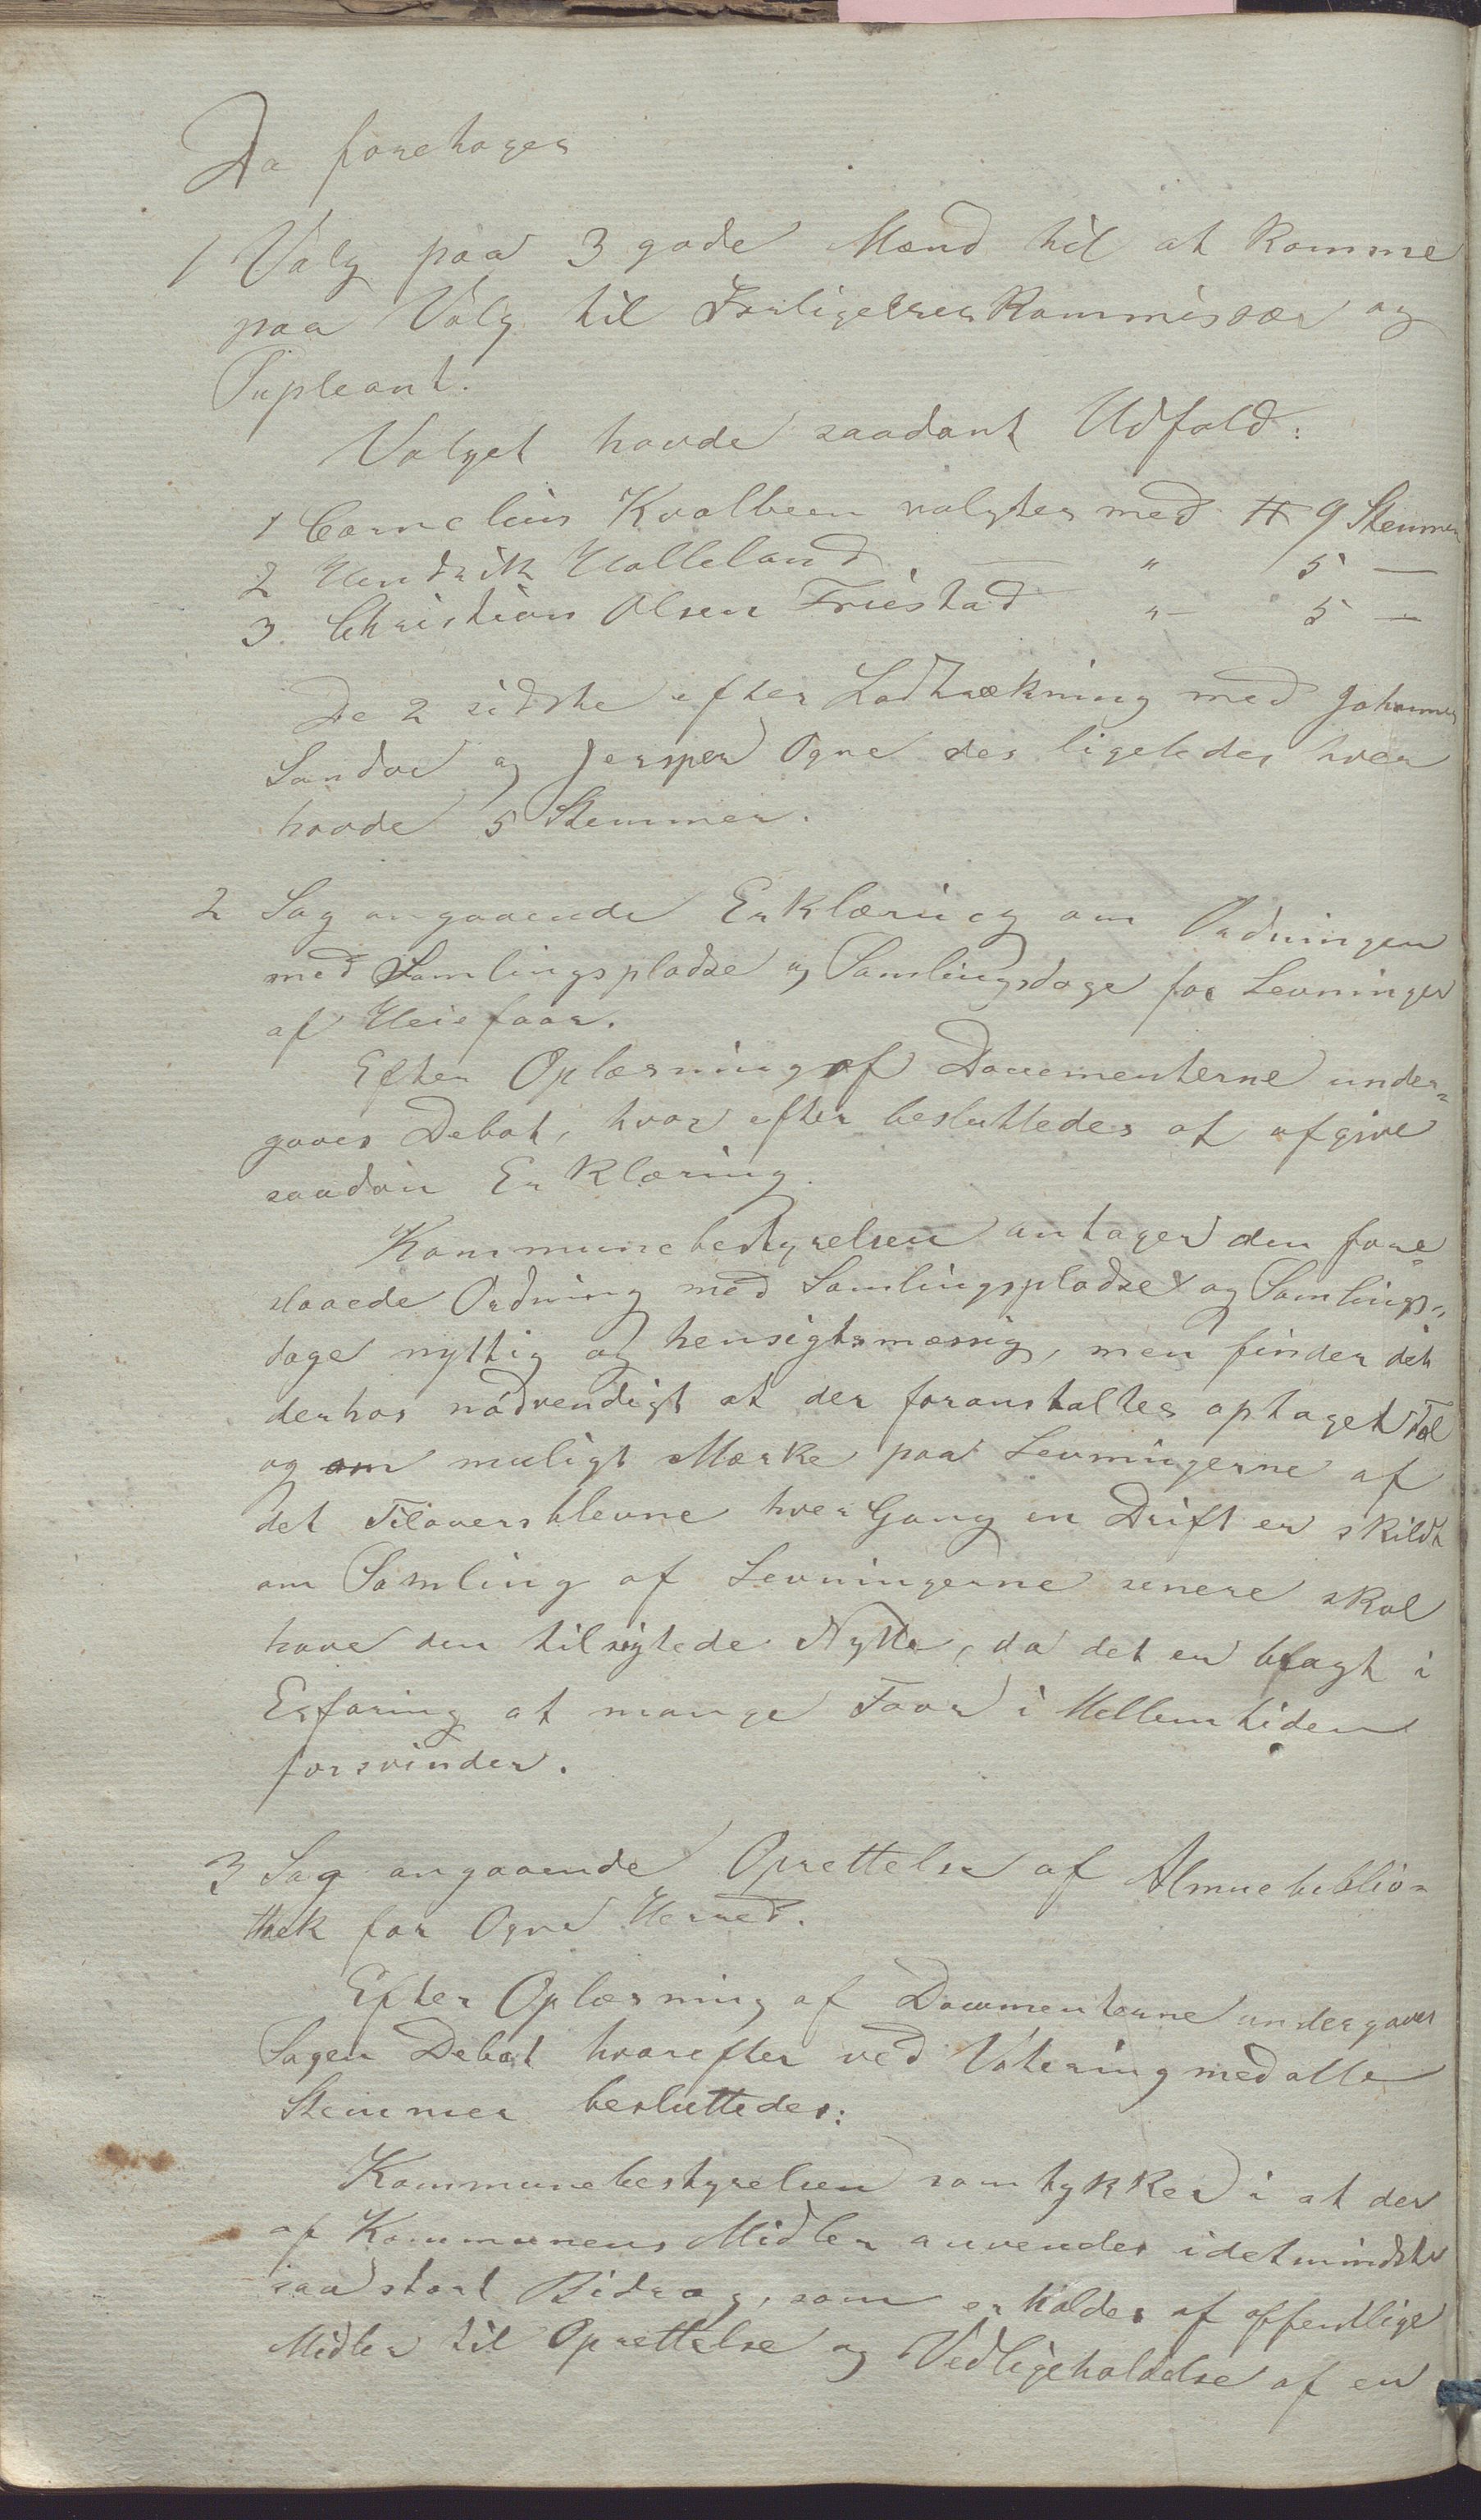 Da foretoges
1 Valg paa 3 gode Mænd til at komme
paa Valg til Forligelses Kommissær og
Supleant.
Valget havde saadant Udfald:
1 Cornelius Kvalbeen valgtes med 9 Stemmer
2 Hendrik Halleland — " 5 —
3. Christian Olsen Friestad " 5 —
De 2 sidste efter Lodtrækning med Johannes
Sandve og Jersper Ogne der ligeledes hver
havde 5 Stemmer.
2 Sag angaaende Erklæring om Ordningen
med Samlingspladse og Samlingsdage for Levninger
af Heiefaar.
Efter Oplæsning af Documenterne under-
gaves Debat, hvor efter besluttedes at afgive
saadan Erklæring.
Kommunebestyrelsen antager den fore-
slaaede Ordning med Samlingspladse og Samlings-
dage nyttig og hensigtsmæssig, men finder det
derhos nødvendigt at der foranstaltes optaget Tal
og om muligt Mærke paa Levningerne af
det Tiloversblevne hver Gang en Drift er skildt
om Samling af Levningerne senere skal
have den tilsigtede Nytte, da det er bragt i
Erfaring at mange Faar i Mellemtiden
forsvinder.
3 Sag angaaende Oprettelse af Almuebiblio-
thek for Ogne Herred.
Efter Oplæsning af Documenterne undergaves
Sagen Debat hvorefter ved Votering med alle
Stemmer besluttedes:
Kommunebestyrelsen samtykker i at der
af Kommunens Midler anvendes idetmindste
saa stort Bidrag, som erholdes af offentlige
Midler til Oprettelse og Vedligeholdelse af en